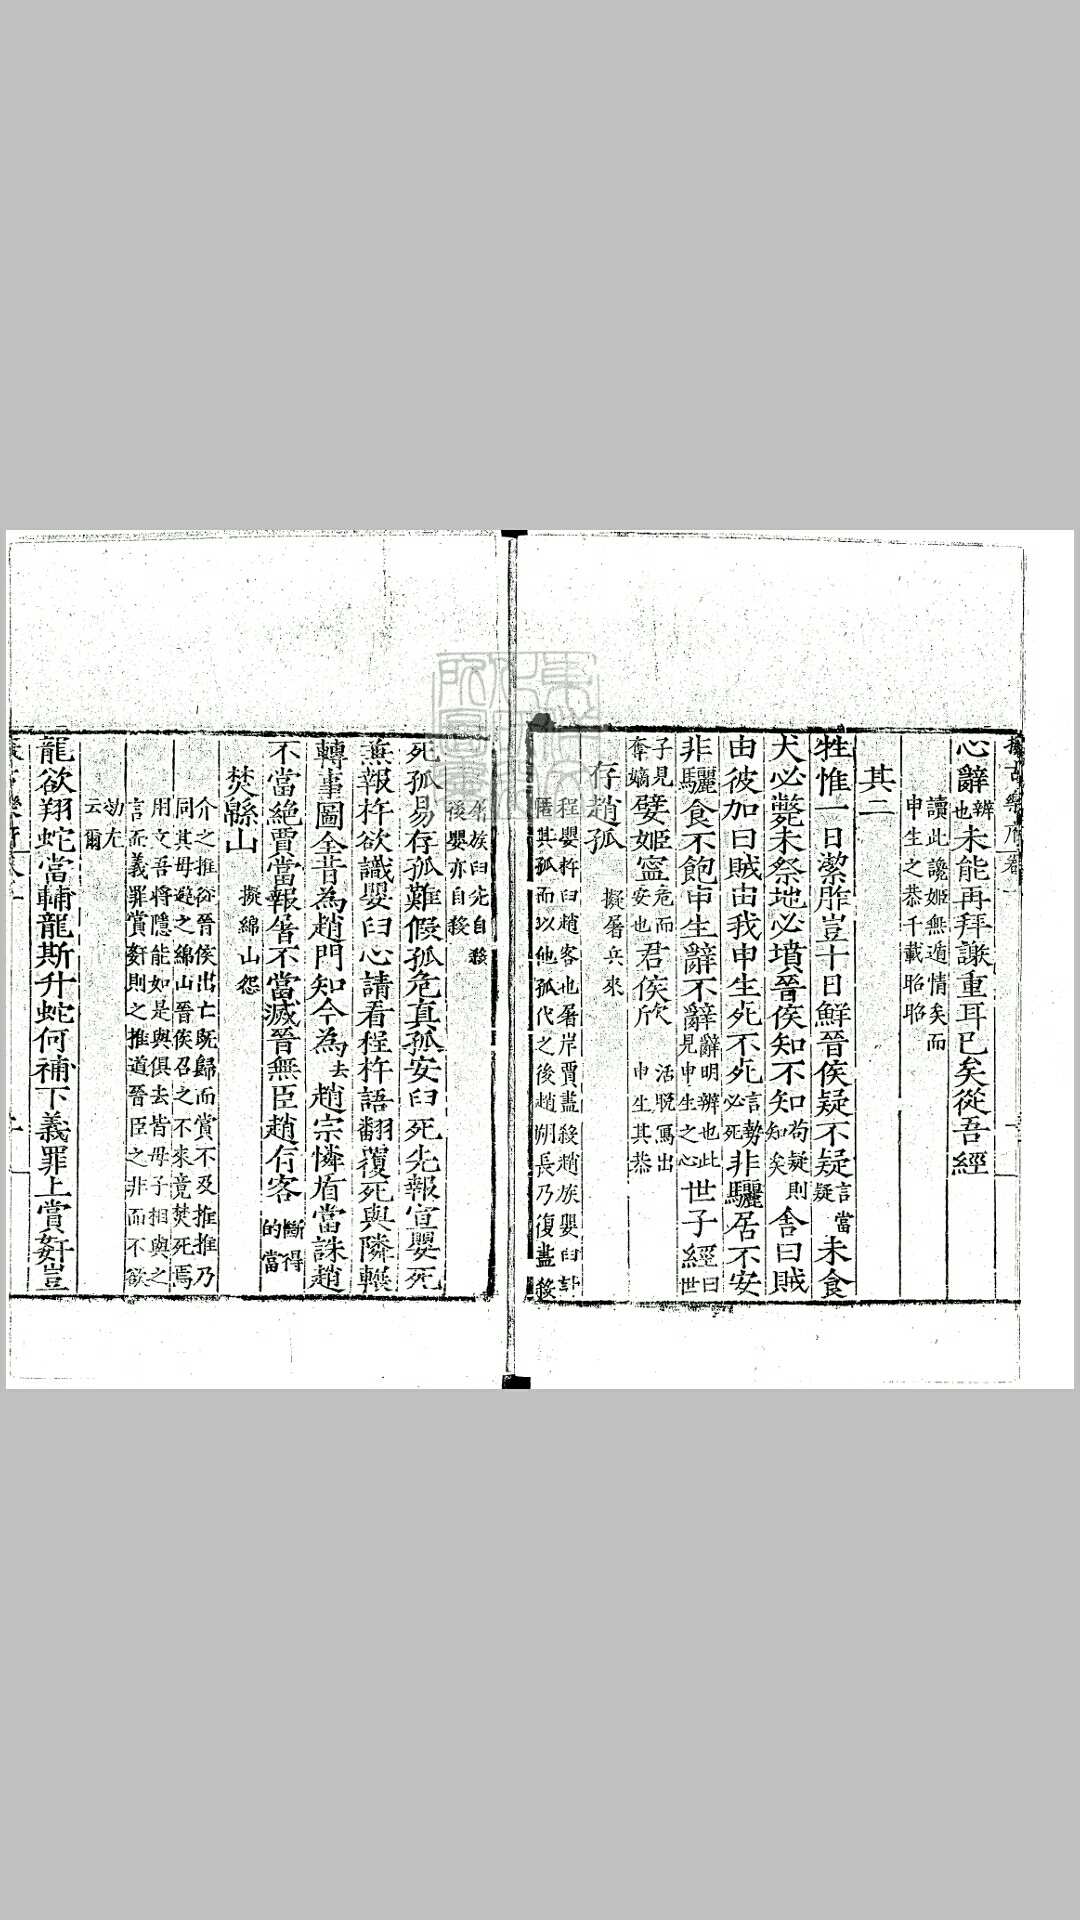 心辭辨也未能再拜謝重耳已矣從吾經
讀此讒姬無遁情矣而
申生之恭千載昭昭
其二
牲惟一日潔胙豈十日鮮晉侯疑不疑言當疑未食
犬必斃未祭地必墳晉侯知不知苟疑則知矣含曰賊
由彼加曰賊由我申生死不死言勢必死非驪居不安
非驪食不飽申生辭不辭辭明辨也此見申生之心世子經曰世
子見奪嫡嬖姬寧危而安也君侯斤
活脫寫出
申生其恭
存趙孤
擬屠兵來
程嬰杵臼趙客也屠岸賈盡殺趙族嬰臼計
匿其孤而以他孤代之後趙朔長乃復盡殺
屠族臼先自殺
後嬰亦自殺
死孤易存孤難假孤危真孤安臼死先報宣嬰死
無報杵欲識嬰臼心請看程杵語翻覆死與隣輾
轉事圖全昔為趙門知今為去趙宗憐盾當誅趙
不當絕賈當報屠不當滅晉無臣趙有客斷得的當
焚緜山
擬綿山怨
介之推從晉侯出亡既歸而賞不及推推乃
同其母避之綿山晉侯召之不來竟焚死焉
用文吾將隱能如是與俱去皆母子相與之
言而義罪賞姦則之推道晉臣之非而不欲
効尤
云爾
龍欲翔蛇當輔龍斯升蛇何補下義罪上賞姦豈